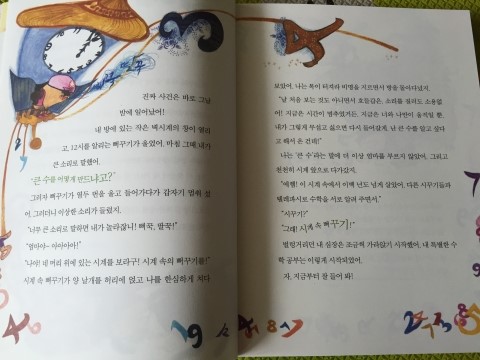 뻐꾹 뻐꾹
진짜 사건은 바로 그날
밤에 일어났어!
내 방에 있는 작은 벽시계의 창이 열리
고, 12시를 알리는 뻐꾸기가 울었어. 마침 그때 내가
큰 소리로 말했어.
“큰 수를 어떻게 만드냐고?”
그러자 뻐꾸기가 열두 번을 울고 들어가다가 갑자기 멈춰 섰
어. 그러더니 이상한 소리가 들렸지.
“너무 큰 소리로 말하면 내가 놀라잖니! 뻐꾹, 딸꾹!”
“엄마야- 아아아아!”
“나야! 네 머리 위에 있는 시계를 보라구! 시계 속의 뻐꾸기를!”
시계 속 뻐꾸기가 양 날개를 허리에 얹고 나를 한심하게 쳐다
보았어. 나는 목이 터져라 비명을 지르면서 방을 돌아다녔지.
“날 처음 보는 것도 아니면서 호들갑은. 소리를 질러도 소용없
어! 지금은 시간이 멈추었거든. 지금은 너와 나만이 움직일 뿐.
내가 그렇게 무섭고 싫으면 다시 들어갈게. 난 큰 수를 알고 싶다
고 해서 온 건데!”
나는 ‘큰 수’라는 말에 더 이상 엄마를 부르지 않았어. 그리고
천천히 시계 앞으로 다가갔지.
“에헴! 이 시계 속에서 이백 년도 넘게 살았어. 다른 시꾸기들과
텔레파시로 수학을 서로 알려 주면서.”
“시꾸기?”
“그래! 시계 속 뻐꾸기!”
벌렁거리던 내 심장은 조금씩 가라앉기 시작했어. 내 특별한 수
학 공부는 이렇게 시작되었어.
자, 지금부터 잘 들어 봐!